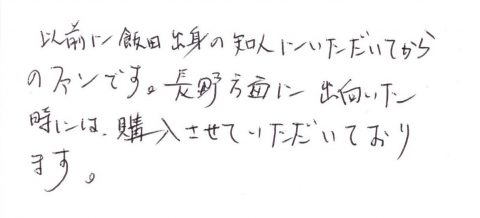 以前に飯田出身の知人にいただいてから
のファンです。長野方面に出向いた
時には、購入させていただいており
ます。